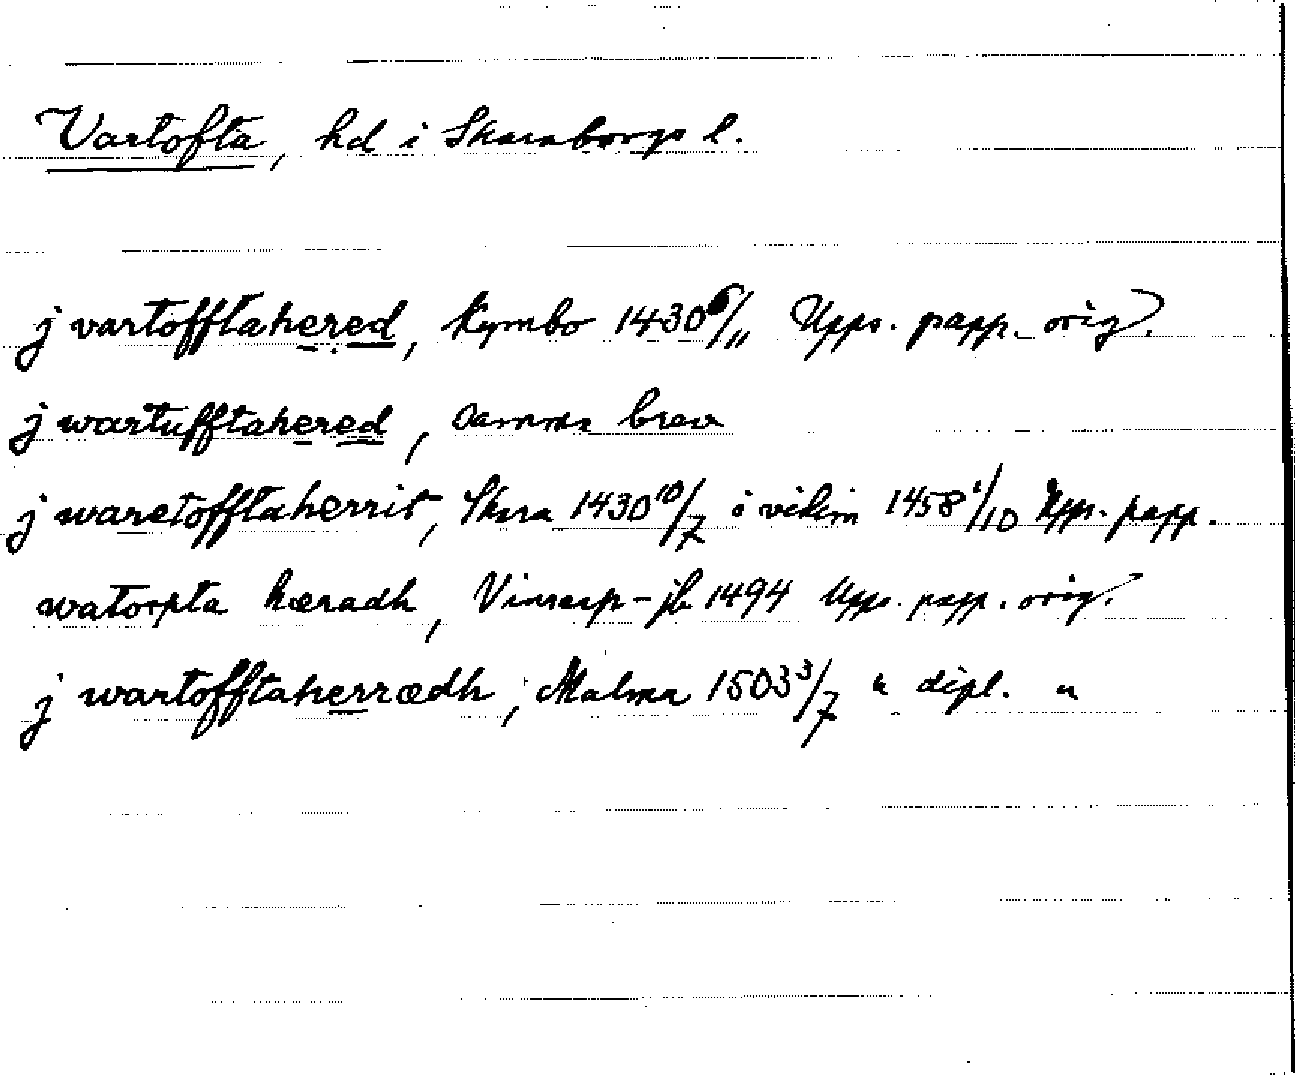 Vartofta, hd i Skaraborgs l.
j vartofftahered, Kymbo 1430 6/11 Upps. papp. orig.
j wartufftahered, samma brev
j waretofftaherrit, Skara 1430 10/7 i vidim 1458 1/10 Upps. papp.
watorpta hæradh, Vinsarp-jb 1494 Upps. papp. orig.
j wartofftaherrædh, Malma 1503 3/7 " dipl. "